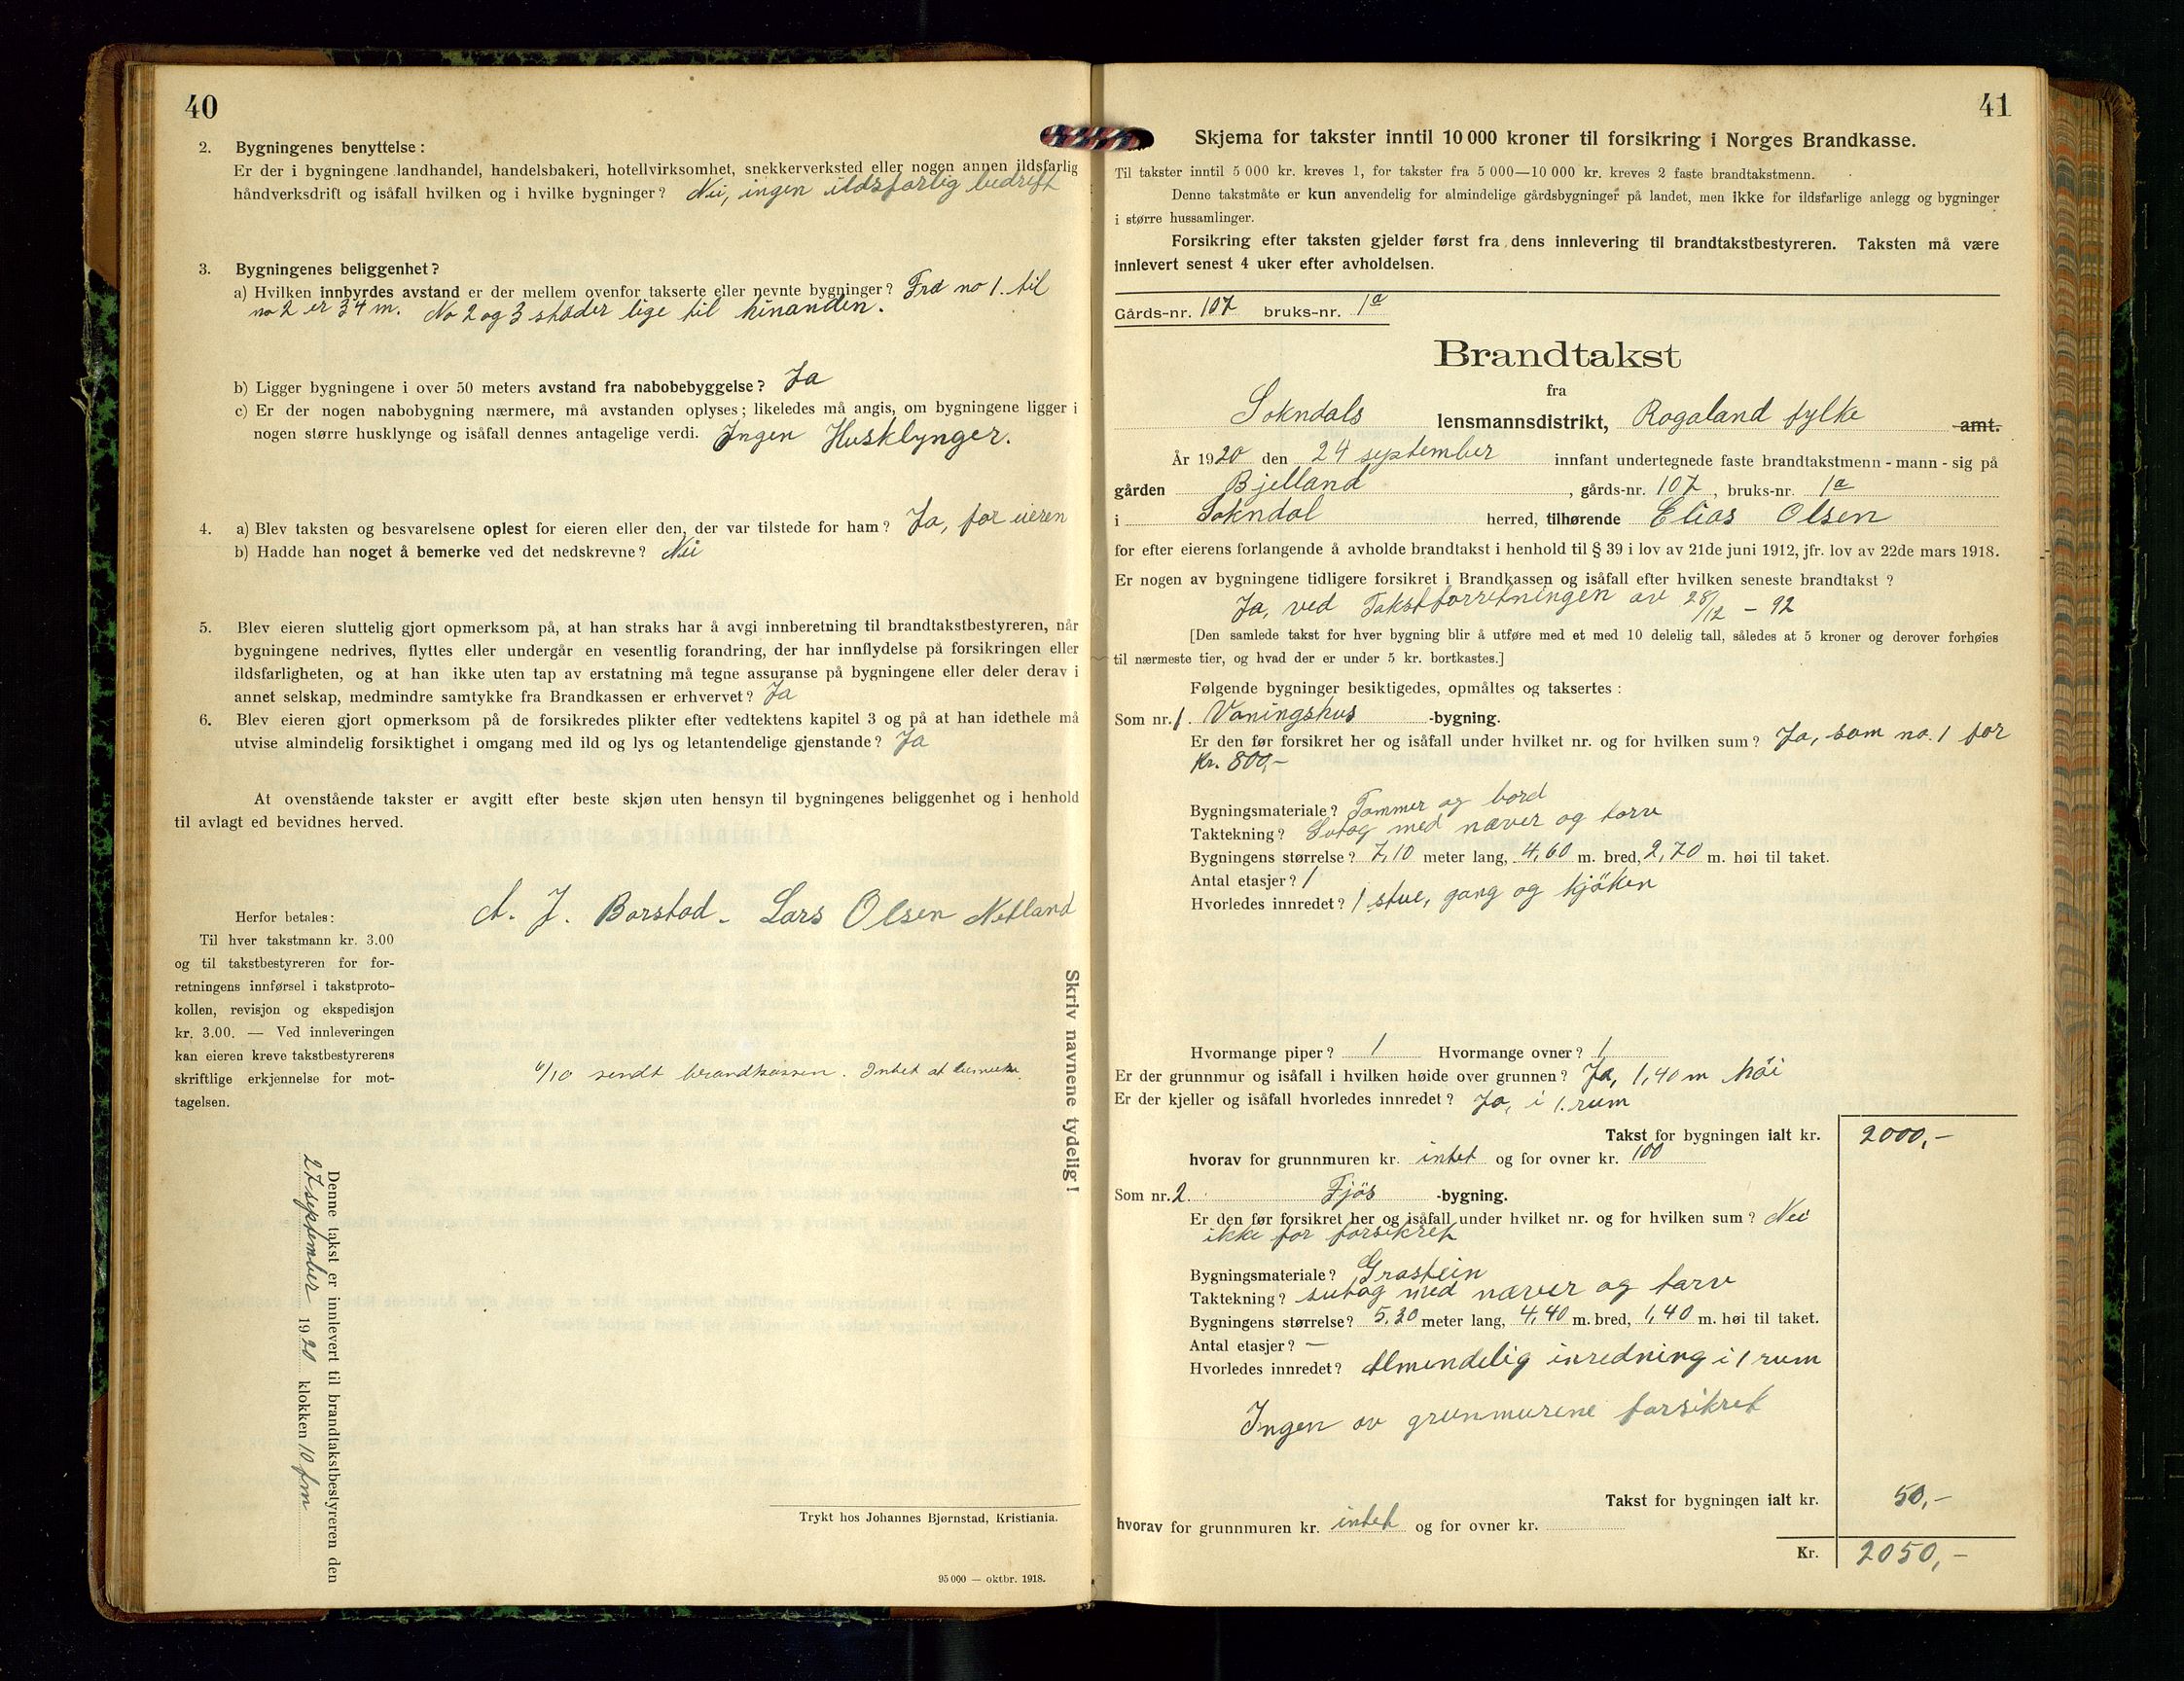 40
2. Bygningenes benyttelse:
Er der i bygningene landhandel, handelsbakeri, hotellvirksomhet, snekkerverksted eller nogen annen ildsfarlig
håndverksdrift og isåfall hvilken og i hvilke bygninger? Nei, ingen ildsfarlig bedrift
3. Bygningenes beliggenhet?
a) Hvilken innbyrdes avstand er der mellem ovenfor takserte eller nevnte bygninger? Fra no 1. til
no 2 er 34 m. No 2 og 3 støder lige til hinanden.
b) Ligger bygningene i over 50 meters avstand fra nabobebyggelse? Ja
c) Er der nogen nabobygning nærmere, må avstanden oplyses; likeledes må angis, om bygningene ligger i
nogen større husklynge og isåfall dennes antagelige verdi. Ingen Husklynger.
4. a) Blev taksten og besvarelsene oplest for eieren eller den, der var tilstede for ham? Ja, for eieren
b) Hadde han noget å bemerke ved det nedskrevne? Nei
5. Blev eieren sluttelig gjort opmerksom på, at han straks har å avgi innberetning til brandtakstbestyreren, når
bygningene nedrives, flyttes eller undergår en vesentlig forandring, der har innflydelse på forsikringen eller
ildsfarligheten, og at han ikke uten tap av erstatning må tegne assuranse på bygningene eller deler derav i
annet selskap, medmindre samtykke fra Brandkassen er erhvervet? Ja
6. Blev eieren gjort opmerksom på de forsikredes plikter efter vedtektens kapitel 3 og på at han idethele må
utvise almindelig forsiktighet i omgang med ild og lys og letantendelige gjenstande? Ja
At ovenstående takster er avgitt efter beste skjøn uten hensyn til bygningenes beliggenhet og i henhold
til avlagt ed bevidnes herved.
A. J. Barstad. Lars Olsen Netland
Herfor betales:
Til hver takstmann kr. 3.00
og til takstbestyreren for for-
retningens innførsel i takstproto-
kollen, revisjon og ekspedisjon
kr. 3.00. — Ved innleveringen
kan eieren kreve takstbestyrerens
skriftlige erkjennelse for mot-
tagelsen.
6/10 sendt brandkassen. Intet at bemerke.
Skriv navnene tydelig!
Denne takst er innlevert til brandtakstbestyreren den
27 september 1920 klokken 10 fm
Trykt hos Johannes Bjørnstad, Kristiania.
95 000 — oktbr. 1918.
41
Skjema for takster inntil 10 000 kroner til forsikring i Norges Brandkasse.
Til takster inntil 5 000 kr. kreves 1, for takster fra 5 000—10 000 kr. kreves 2 faste brandtakstmenn.
Denne takstmåte er kun anvendelig for almindelige gårdsbygninger på landet, men ikke for ildsfarlige anlegg og bygninger
i større hussamlinger.
Forsikring efter taksten gjelder først fra dens innlevering til brandtakstbestyreren. Taksten må være
innlevert senest 4 uker efter avholdelsen.
Gårds-nr. 107 bruks-nr. 1a
Brandtakst
fra
Sokndals lensmannsdistrikt, Rogaland fylke amt.
År 1920 den 24 september innfant undertegnede faste brandtakstmenn - mann - sig på
gården Bjelland, gårds-nr. 107, bruks-nr. 1a
i Sokndal herred, tilhørende Elias Olsen
for efter eierens forlangende å avholde brandtakst i henhold til § 39 i lov av 21de juni 1912, jfr. lov av 22de mars 1918.
Er nogen av bygningene tidligere forsikret i Brandkassen og isåfall efter hvilken seneste brandtakst?
Ja, ved Takstforretningen av 28/12 - 92
[Den samlede takst for hver bygning blir å utføre med et med 10 delelig tall, således at 5 kroner og derover forhøies
til nærmeste tier, og hvad der er under 5 kr. bortkastes.]
Følgende bygninger besiktigedes, opmåltes og taksertes:
Som nr. 1. Vaningshus -bygning.
Er den før forsikret her og isåfall under hvilket nr. og for hvilken sum? Ja, som no. 1 for
Kr. 800,-
Bygningsmateriale? Tømmer og bord
Taktekning? Sutag med næver og torv
Bygningens størrelse? 7,10 meter lang, 4,60 m. bred, 2,70 m. høi til taket.
Antal etasjer? 1
Hvorledes innredet? 1 stue, gang og kjöken
Hvormange piper? 1 Hvormange ovner? 1
Er der grunnmur og isåfall i hvilken høide over grunnen? Ja, 1,40 m høi
Er der kjeller og isåfall hvorledes innredet? Ja, i 1. rum
Takst for bygningen ialt kr. 2000,-
hvorav for grunnmuren kr. intet og for ovner kr. 100
Som nr. 2. Fjös -bygning.
Er den før forsikret her og isåfall under hvilket nr. og for hvilken sum? Nei
ikke før forsikret
Bygningsmateriale? Grastein
Taktekning? sutag med næver og tarv
Bygningens størrelse? 5,30 meter lang, 4,40 m. bred, 1,40 m. høi til taket.
Antal etasjer? -
Hvorledes innredet? Almendelig inredning i 1 rum
Ingen av grunmurene forsikret
Takst for bygningen ialt kr. 50,-
hvorav for grunnmuren kr. intet og for ovner kr.
Kr. 2050,-